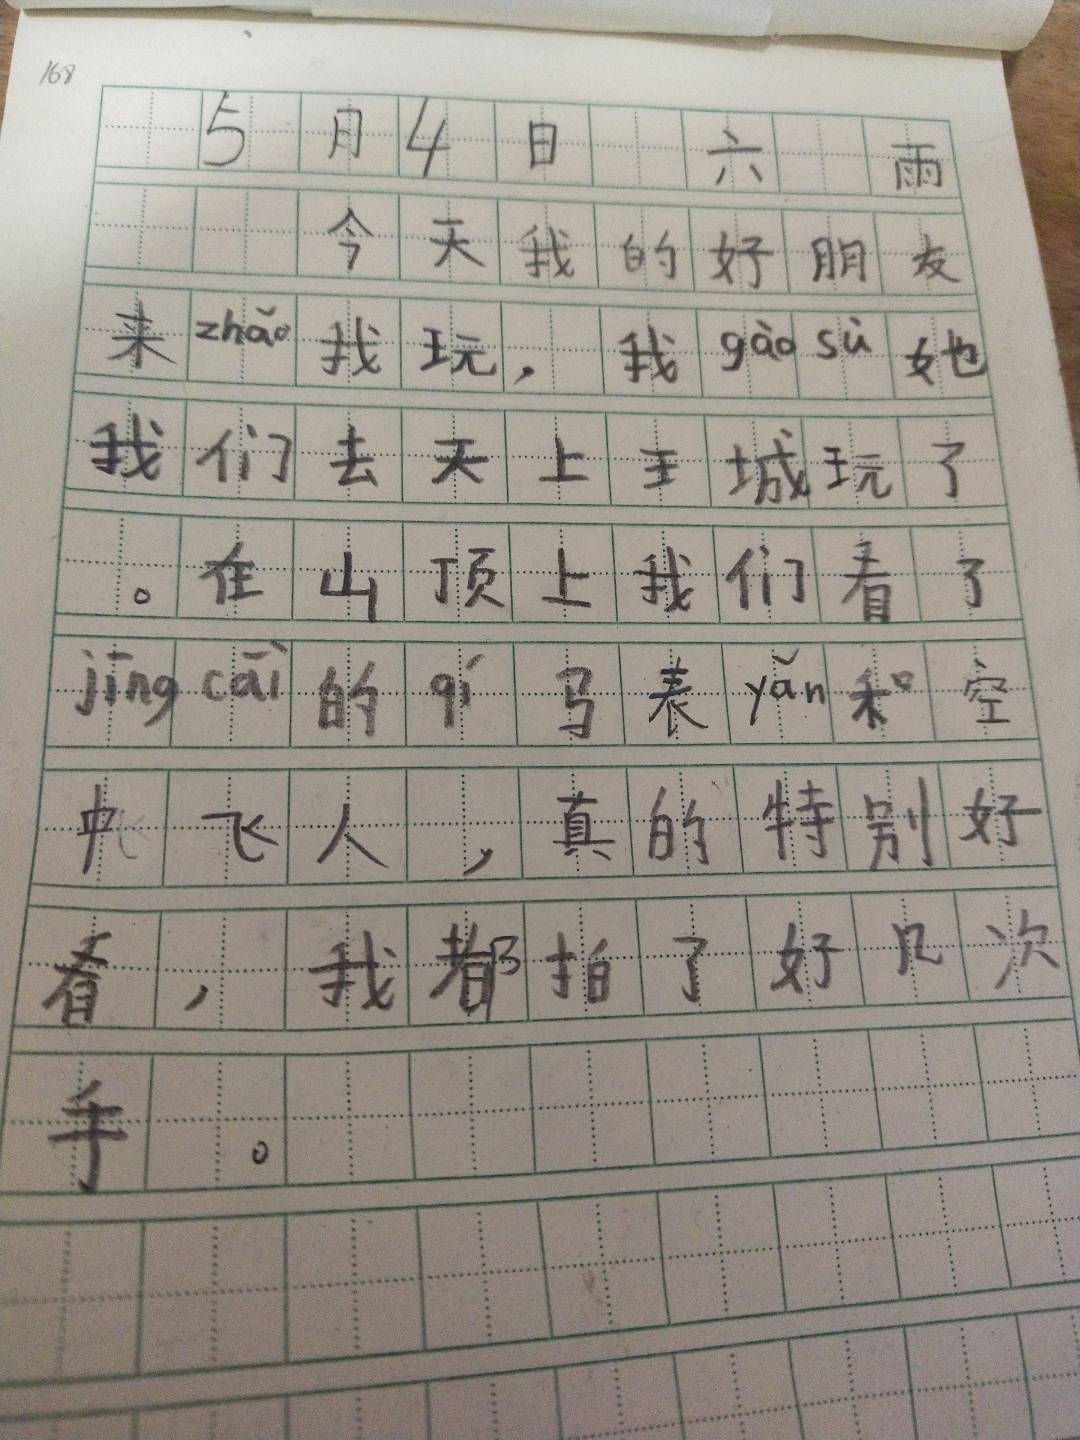 168
5月4日 六 雨
今天我的好朋友
来zhǎo我玩，我gào sù她
我们去天上王城玩了
。在山顶上我们看了
jīng cǎi的qí马表yǎn和空
中飞人，真的特别好
看，我都拍了好几次
手。